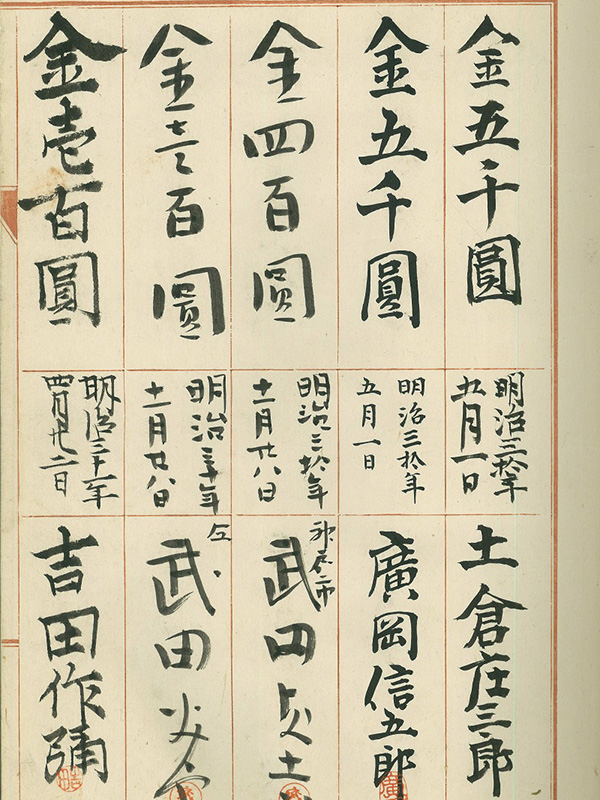 金五千圓
明治三拾年
五月一日
土倉庄三郎
金五千圓
明治三拾年
五月一日
廣岡信五郎
金四百圓
明治三拾年
十一月廿八日
神戸市
武田
金壱百圓
明治三十年
十一月廿八日
仝
武田
金壱百圓
明治三十一年
四月廿二日
吉田作彌